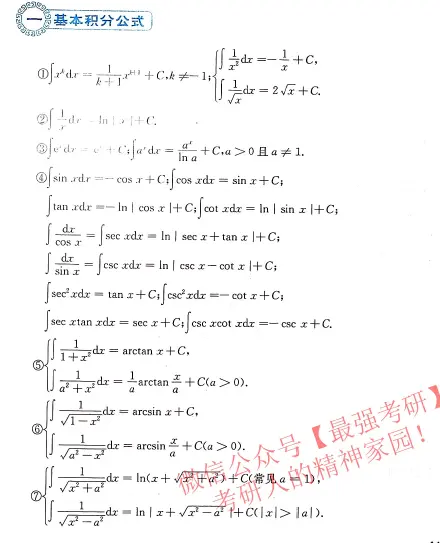 一 基本积分公式
①∫x^k dx = 1/(k+1) x^(k+1) + C, k ≠ −1; { ∫1/x² dx = −1/x + C,
∫1/√x dx = 2√x + C.
②∫1/x dx = ln|x| + C.
③∫e^x dx = e^x + C; ∫a^x dx = a^x/ln a + C, a > 0 且 a ≠ 1.
④∫sin xdx = −cos x + C; ∫cos xdx = sin x + C;
∫tan xdx = −ln|cos x| + C; ∫cot xdx = ln|sin x| + C;
∫dx/cos x = ∫sec xdx = ln|sec x + tan x| + C;
∫dx/sin x = ∫csc xdx = ln|csc x − cot x| + C;
∫sec²xdx = tan x + C; ∫csc²xdx = −cot x + C;
∫sec xtan xdx = sec x + C; ∫csc xcot xdx = −csc x + C.
⑤{ ∫1/(1+x²) dx = arctan x + C,
∫1/(a²+x²) dx = 1/a arctan x/a + C(a > 0).
⑥{ ∫1/√(1−x²) dx = arcsin x + C,
∫1/√(a²−x²) dx = arcsin x/a + C(a > 0).
⑦{ ∫1/√(x²+a²) dx = ln(x + √(x²+a²)) + C(常见 a = 1),
∫1/√(x²−a²) dx = ln|x + √(x²−a²)| + C(|x| > |a|).
微信公众号【最强考研】
考研人的精神家园！